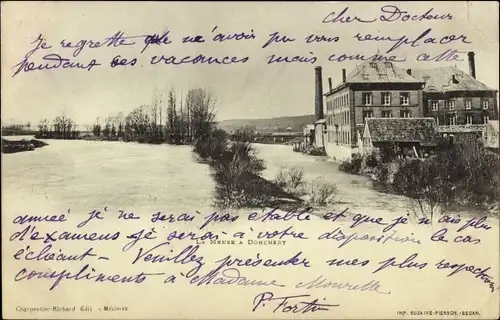 Cher Docteur
Je regrette que je n'avoir pu vous remplacer
pendant vos vacances mais comme cette
année je ne serai pas étable et que je n'ai plus
d'examens je serai à votre disposition le cas
échéant - Veuillez présenter mes plus respectueux
compliments à Madame Mourette
P. Fortin
LA MEUSE A DONCHERY
Charpentier-Richard Edit. - Mézières
IMP. SUZAINE-PIERSON.-SEDAN.